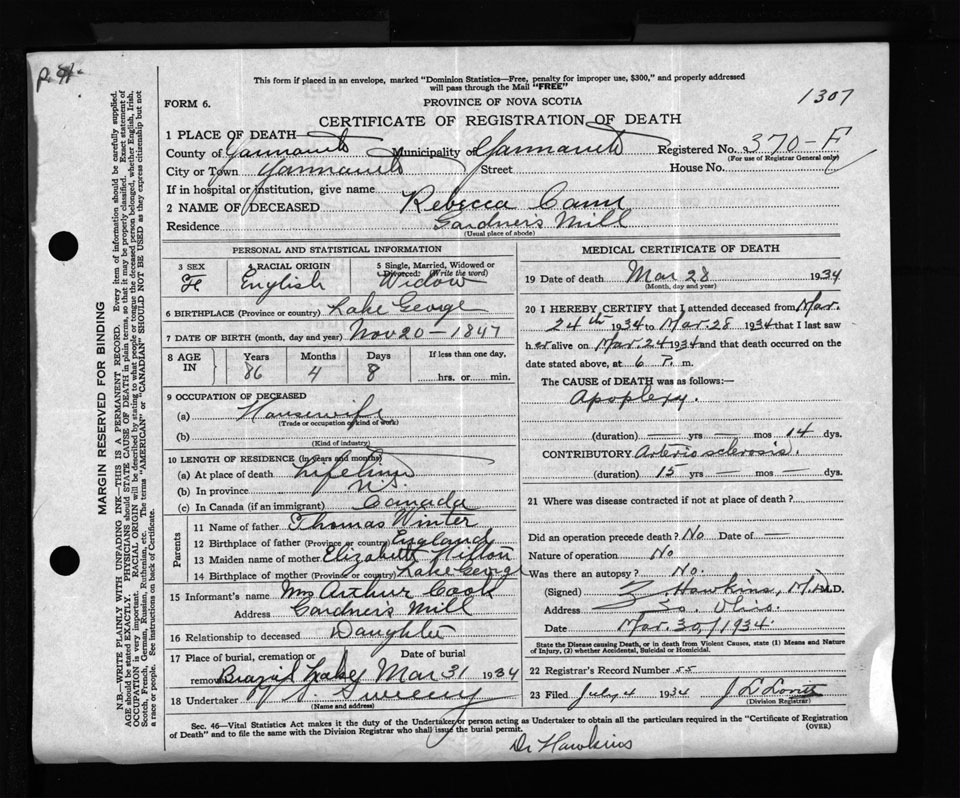 This form if placed in an envelope, marked "Dominion Statistics—Free, penalty for improper use, $300," and properly addressed
will pass through the Mail "FREE"
FORM 6.
PROVINCE OF NOVA SCOTIA
1307
CERTIFICATE OF REGISTRATION OF DEATH
1 PLACE OF DEATH
County of Yarmouth Municipality of Yarmouth Registered No. 370-F
(For use of Registrar General only)
City or Town Yarmouth Street House No.
If in hospital or institution, give name
2 NAME OF DECEASED Rebecca Cann
Residence Gardner's Mill
(Usual place of abode)
PERSONAL AND STATISTICAL INFORMATION
3 SEX F
4 RACIAL ORIGIN English
5 Single, Married, Widowed or Divorced (Write the word) Widow
6 BIRTHPLACE (Province or country) Lake George
7 DATE OF BIRTH (month, day and year) Nov 20 - 1847
8 AGE IN Years 86 Months 4 Days 8 If less than one day, hrs. or min.
9 OCCUPATION OF DECEASED
(a) Housewife
(Trade or occupation or kind of work)
(b)
(Kind of industry)
10 LENGTH OF RESIDENCE (in years and months)
(a) At place of death Lifetime
(b) In province N.S.
(c) In Canada (if an immigrant) Canada
Parents
11 Name of father Thomas Winter
12 Birthplace of father (Province or country) England
13 Maiden name of mother Elizabeth Hilton
14 Birthplace of mother (Province or country) Lake George
15 Informant's name Mrs Arthur Cook
Address Gardner's Mill
16 Relationship to deceased Daughter
17 Place of burial, cremation or removal Brazil Lake Date of burial Mar 31 1934
18 Undertaker Sweeny
(Name and address)
MEDICAL CERTIFICATE OF DEATH
19 Date of death Mar 28 1934
(Month, day and year)
20 I HEREBY CERTIFY that I attended deceased from Mar.
24th 1934 to Mar. 28 1934 that I last saw
her alive on Mar. 24 1934 and that death occurred on the
date stated above, at 6 P. m.
The CAUSE of DEATH was as follows:—
Apoplexy.
(duration) — yrs — mos 14 dys.
CONTRIBUTORY Arteriosclerosis.
(duration) 15 yrs — mos — dys.
21 Where was disease contracted if not at place of death?
Did an operation precede death? No Date of —
Nature of operation No
Was there an autopsy? No.
(Signed) Hawkins, M.D.
Address So. Ohio.
Date Mar. 30, 1934.
State the Disease causing Death, or in death from Violent Causes, state (1) Means and Nature
of Injury, (2) whether Accidental, Suicidal or Homicidal.
22 Registrar's Record Number 55
23 Filed July 4 1934 J L Lovitt
(Division Registrar)
Sec. 46—Vital Statistics Act makes it the duty of the Undertaker or person acting as Undertaker to obtain all the particulars required in the "Certificate of Registration
of Death" and to file the same with the Division Registrar who shall issue the burial permit.
(OVER)
Dr Hawkins
MARGIN RESERVED FOR BINDING
N.B.—WRITE PLAINLY WITH UNFADING INK—THIS IS A PERMANENT RECORD. Every item of information should be carefully supplied.
AGE should be stated EXACTLY. PHYSICIANS should STATE CAUSE OF DEATH in plain terms, so that it may be properly classified. Exact statement of
OCCUPATION is very important. RACIAL ORIGIN will be described by stating to what people or tongue the deceased person belonged, whether English, Irish,
Scotch, French, German, Russian, Ruthenian, etc. The terms "AMERICAN" or "CANADIAN" SHOULD NOT BE USED as they express citizenship but not
a race or people. See instructions on back of Certificate.